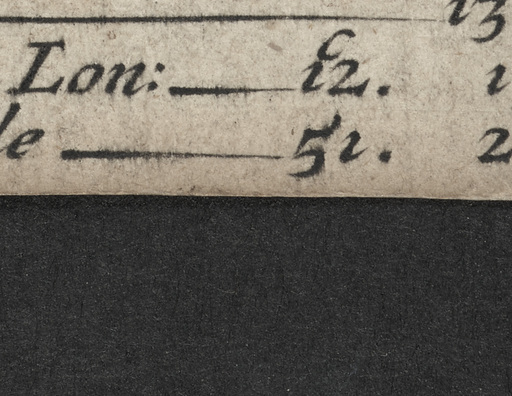 13
Lon: 12. 1
le 51. 2